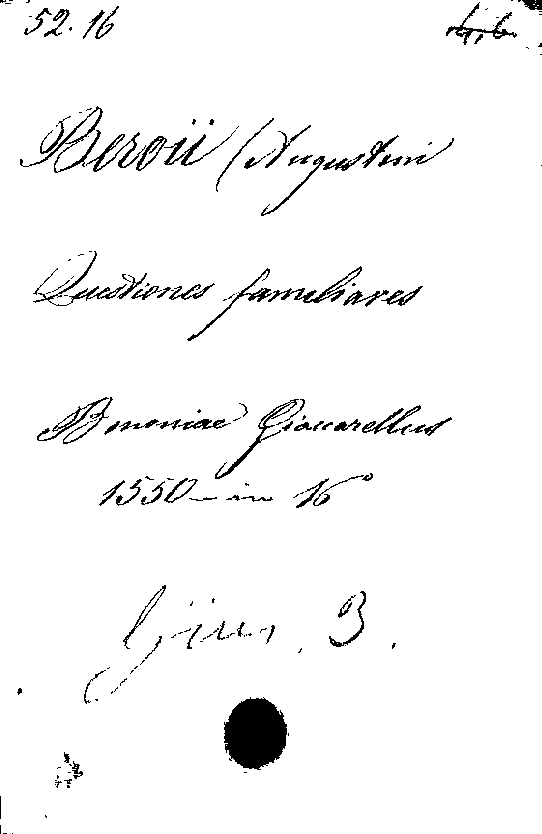 52.16
4,6.
Beroii (Augustini
Questiones familiares
Bononiae Giaccarellus
1550 – in 16°
3.